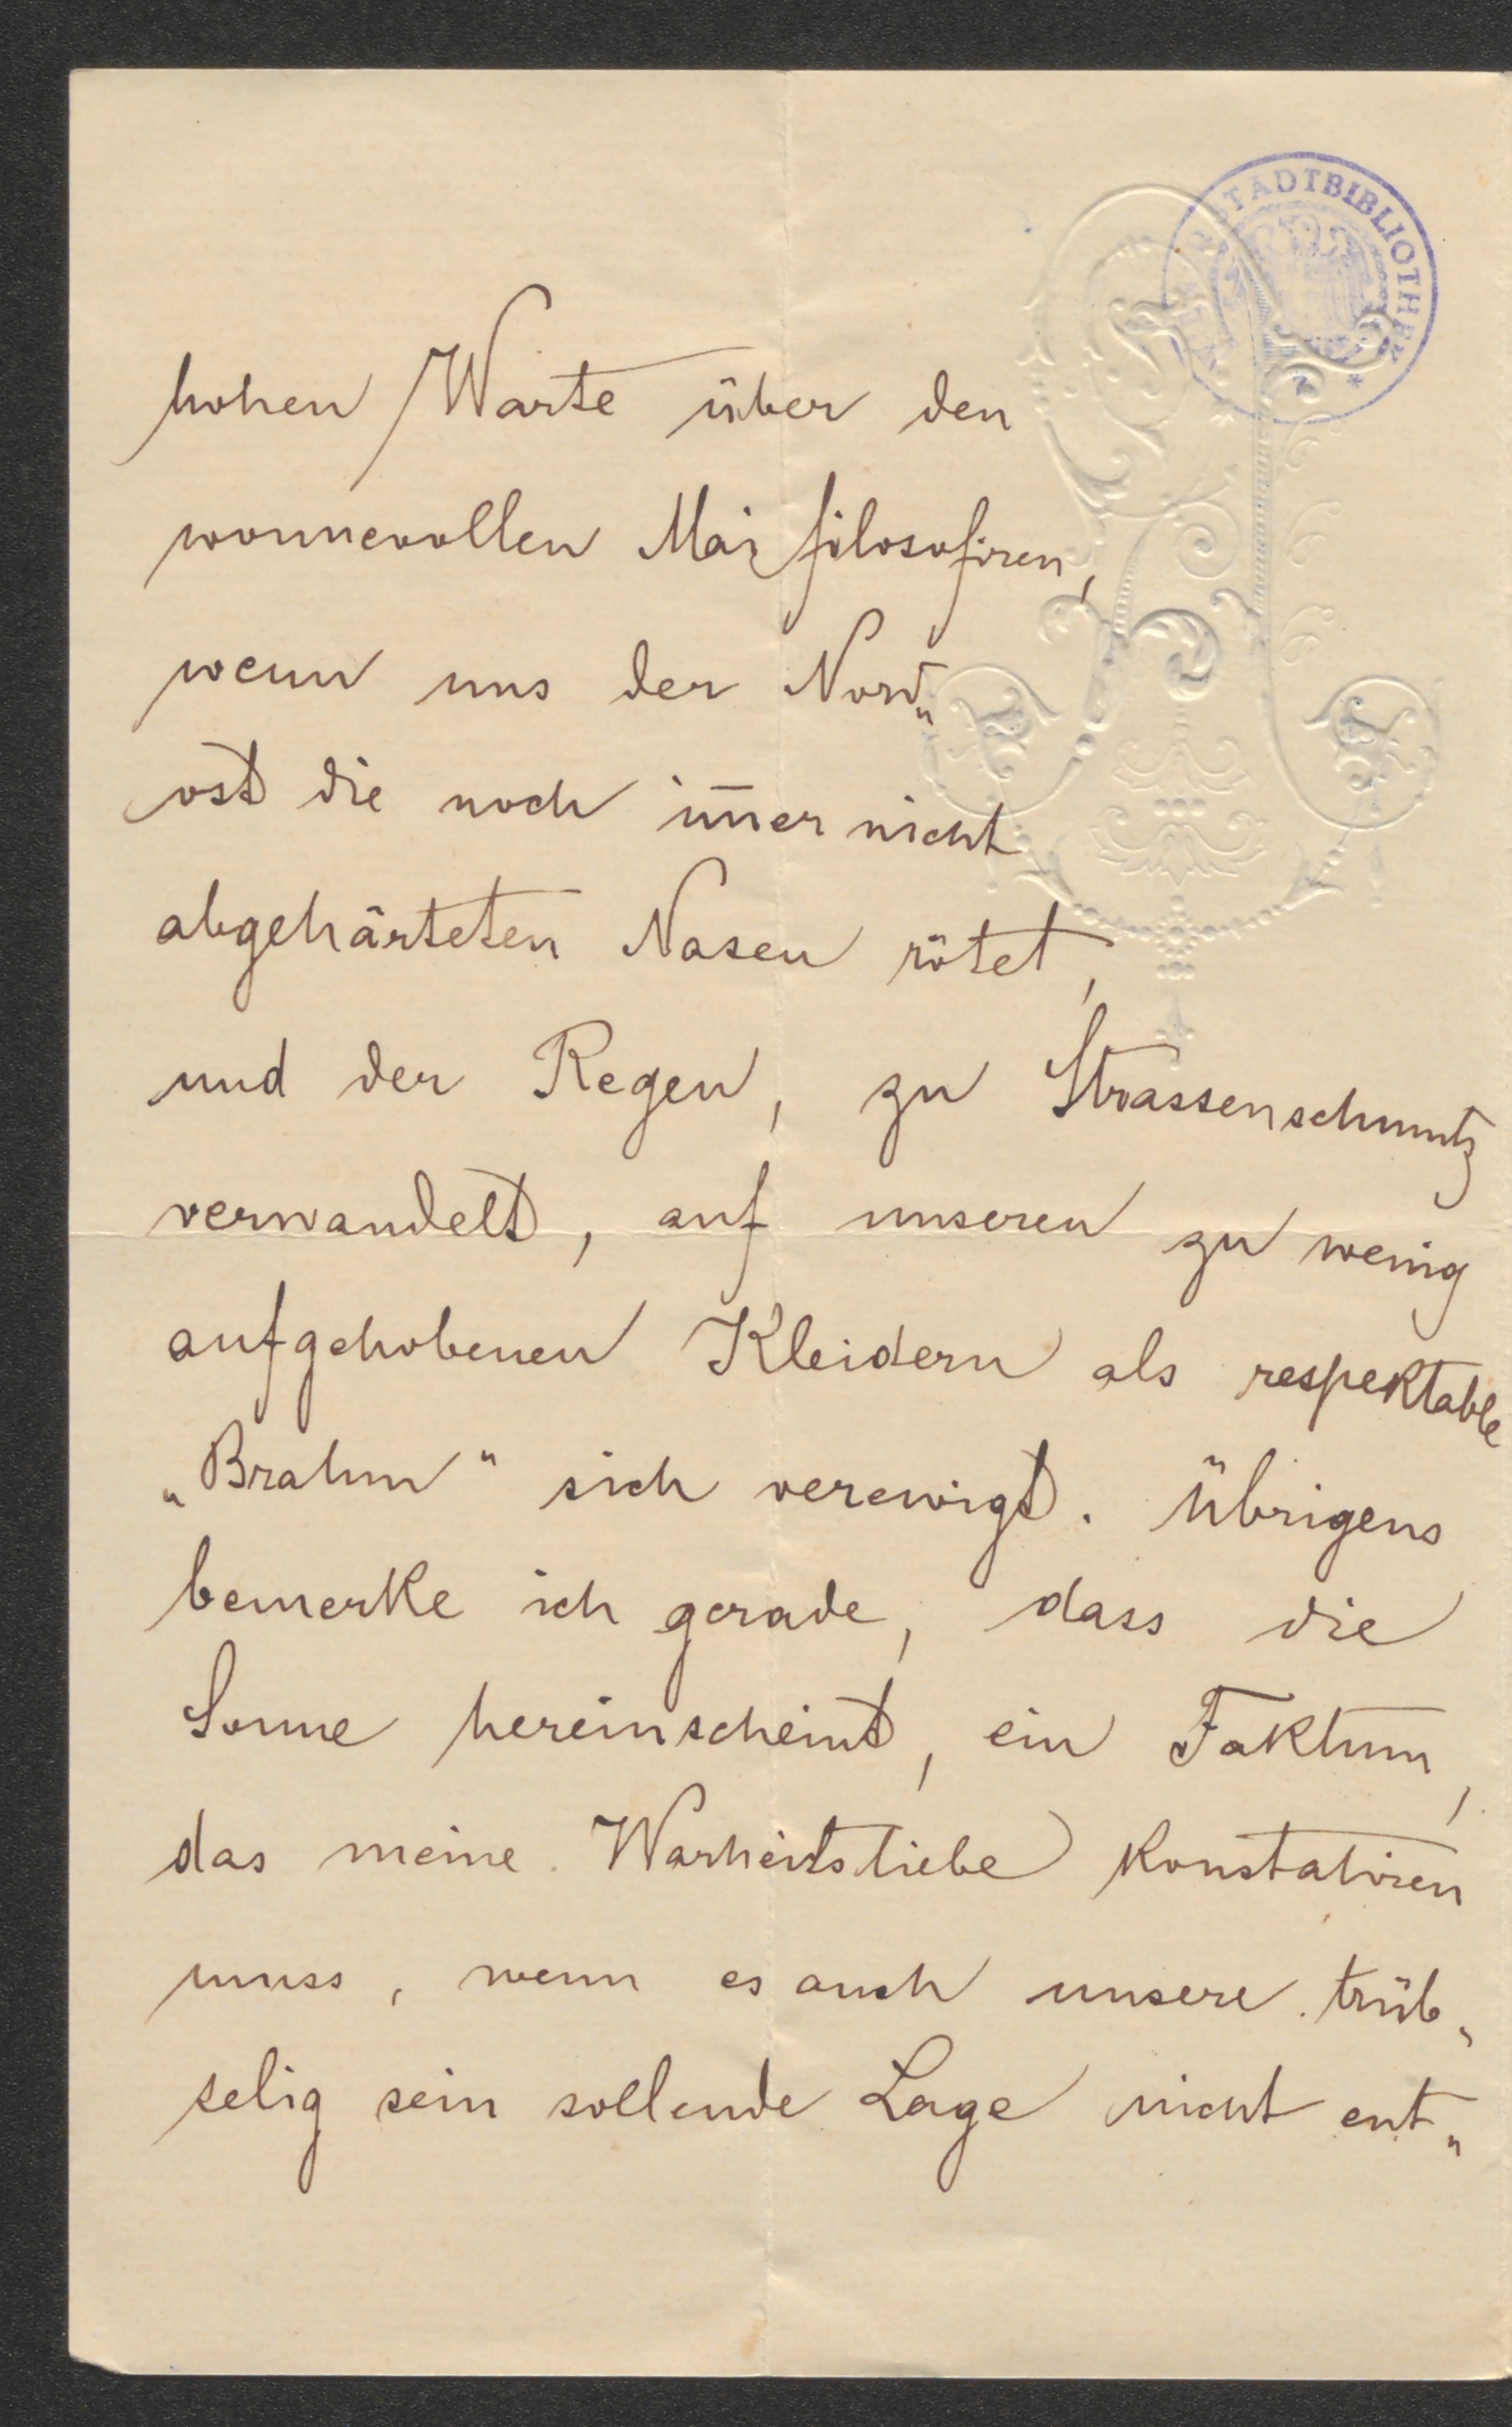 STADTBIBLIOTHEK
hohen Warte über den
wonnevollen Mai filosofiren,
wenn uns der Nord„
ost die noch im̄er nicht
abgehärteten Nasen rötet,
und der Regen, zu Strassenschmutz
verwandelt, auf unseren zu wenig
aufgehobenen Kleidern als respektable
„Brahm" sich verewigt. Übrigens
bemerke ich gerade, dass die
Sonne hereinscheint, ein Faktum,
das meine Warheitsliebe konstatiren
muss, wenn es auch unsere trüb„
selig sein sollende Lage nicht ent„